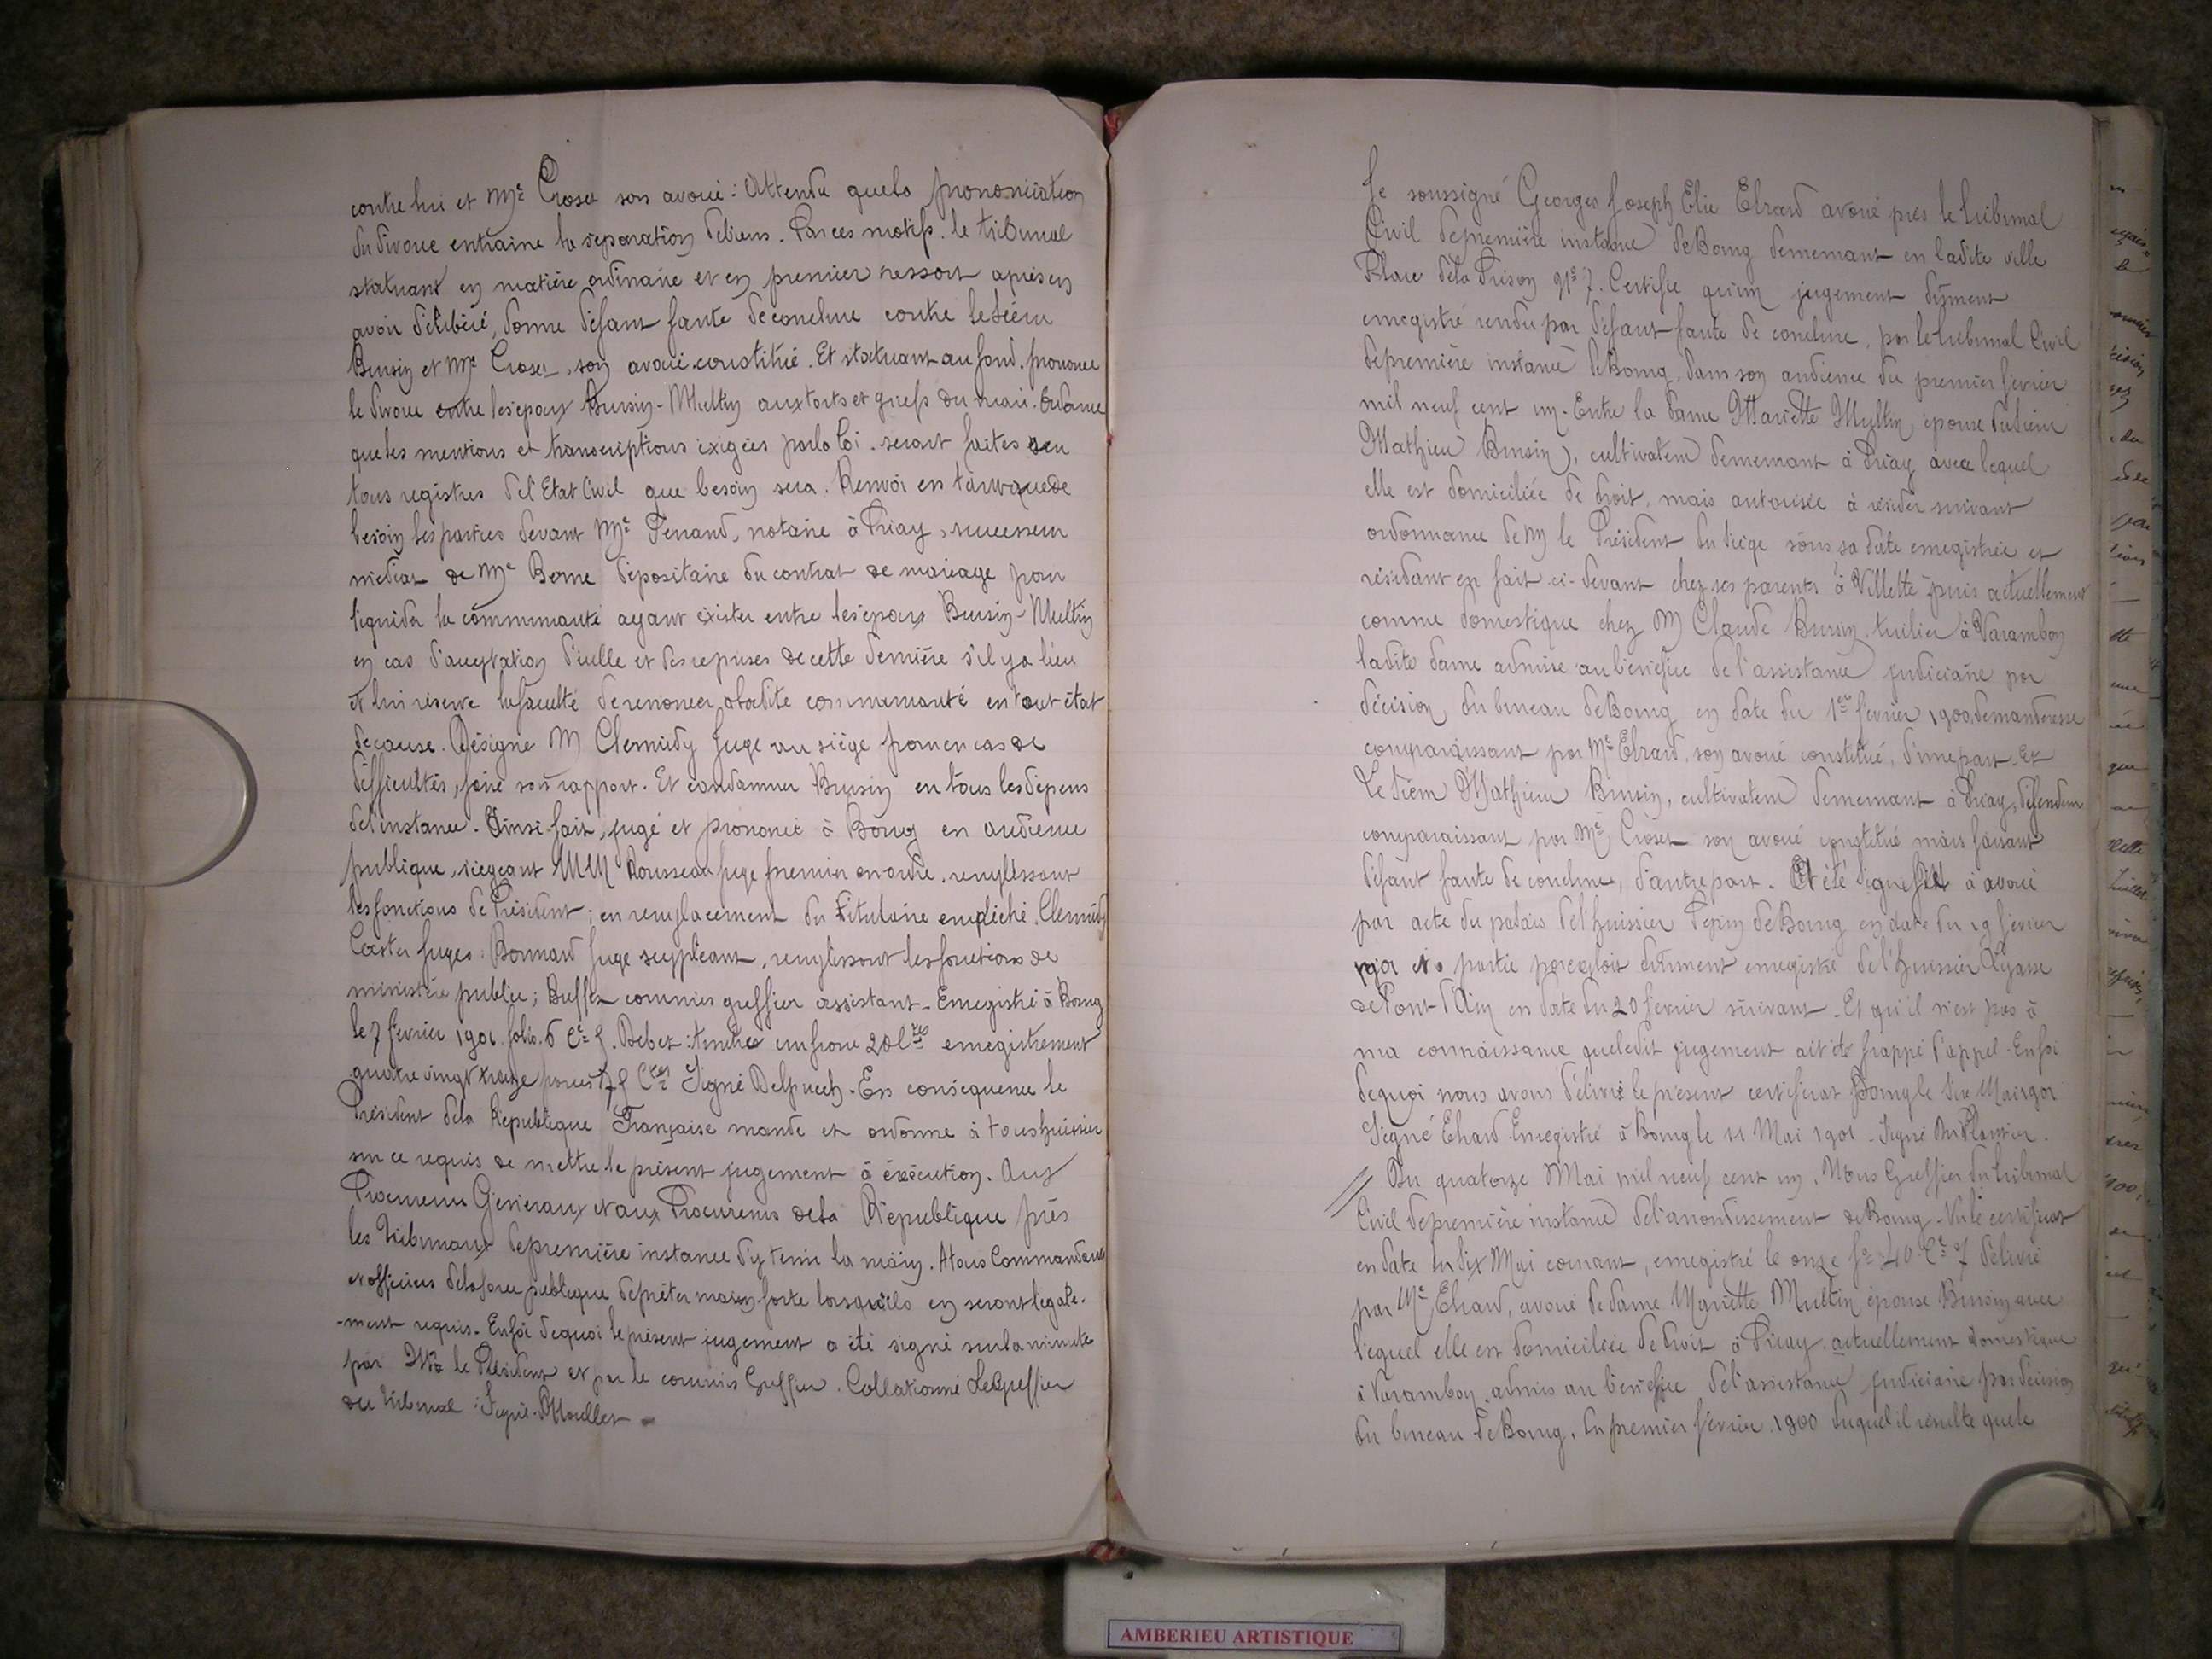 contre lui et Me Croset son avoué : Attendu quela prononciation
du divorce entraine la séparation debiens. Parces motifs. le tribunal
statuant en matière ordinaire et en premier ressort aprèsen
avoir délibéré, donne défaut faute deconclure contre leSieur
Bursin et Me Croset, son avoué constitué. Et statuant au fond. prononce
le divorce entre lesépoux Bursin-Multin auxtorts et griefs du mari. Ordonne
queles mentions et transcriptions exigées parla loi. seront faites sur
tous registres del'Etat Civil que besoin sera. Renvoi en tantquede
besoin lesparties devant Me Ferrand, notaire à Priay, successeur
médiat de Me Berne dépositaire du contrat de mariage pour
liquider la communauté ayant éxister entre lesépoux Bursin-Multin
en cas d'acceptation d'icelle et desreprises decette dernière s'il ya lieu
et lui réserve lafaculté derenoncer àladite communauté en tout état
decause. Désigne M Clermidy Juge au siège pouren cas de
difficultés, faire son rapport. Et condamner Bursin en tous lesdépens
del'instance. Ainsi fait, jugé et prononcé à Bourg en audience
publique, siégeant MM Rousseau juge premier enordre. remplissant
lesfonctions de Président ; en remplacement du Titulaire empêché, Clermidy
Juges. Bonnard Juge suppléant, remplissant lesfonctions de
ministère public ; Buffet commis greffier assistant. Enregistré à Bourg
le 7 février 1901. folio. 6 Ce 9. Debet : 20 Ces enregistrement
quatre vingt treize francs 75 Ces Signé Delpuech. En conséquence le
Président dela République Française mande et ordonne à tous huissiers
sur ce requis de mettre le présent jugement à éxécution. Aux
Procureurs Généraux etaux Procureurs dela République près
les Tribunaux depremière instance d'y tenir la main. Atous Commandants
et officiers delaforce publique deprêter main-forte lorsqu'ils en seront légale-
-ment requis. Enfoi dequoi leprésent jugement a été signé surlaminute
par Mr le Président et par le commis Greffier. Collationné LeGreffier
du tribunal : Signé. Moullet
Je soussigné Georges Joseph Elie Ebrard avoué près le tribunal
Civil depremière instance deBourg demeurant en ladite ville
Place dela Prison No 7. Certifie qu'un jugement dûment
enregistré rendu par défaut faute de conclure, par le tribunal Civil
depremière instance deBourg, dans son audience du premier février
mil neuf cent un. Entre la dame Mariette Multin, épouse duSieur
Mathieu Bursin, cultivateur demeurant à Priay avec lequel
elle est domiciliée de droit, mais autorisée à résider suivant
ordonnance deM le Président du siège sous sa date enregistrée et
résidant en fait ci-devant chez ses parents à Villette puis actuellement
comme domestique chez M Claude Bursin, tuilier à Varambon
ladite dame admise au bénéfice de l'assistance judiciaire par
décision du bureau deBourg en date du 1er février 1900, demanderesse
comparaissant par Me Ebrard, son avoué constitué, d'une part. Et
Le Sieur Mathieu Bursin, cultivateur demeurant à Priay, défendeur
comparaissant par Me Croset son avoué constitué mais faisant
défaut faute de conclure, d'autre part. A été signifié à avoué
par acte du palais del'huissier Pépin deBourg en date du 19 février
1901 et à partie parexploit dûment enregistré de l'huissier
dePont-d'Ain en date du 20 février suivant. Et qu'il n'est pas à
ma connaissance queledit jugement ait été frappé d'appel. Enfoi
dequoi nous avons délivré le présent certificat Bourg le dix Mai 1901
Signé Ebrard. Enregistré à Bourg le 11 Mai 1901. Signé
Du quatorze Mai mil neuf cent un. Nous Greffier du tribunal
Civil depremière instance del'arrondissement deBourg. Vu le certificat
en date du dix Mai courant, enregistré le onze fo 40 Ce 7 délivré
par Me Ebrard, avoué de dame Mariette Multin épouse Bursin avec
lequel elle est domiciliée de droit à Priay. actuellement domestique
à Varambon. admis au bénéfice del'assistance judiciaire par décision
du bureau deBourg. du premier février 1900 duquel il résulte quele
AMBERIEU ARTISTIQUE